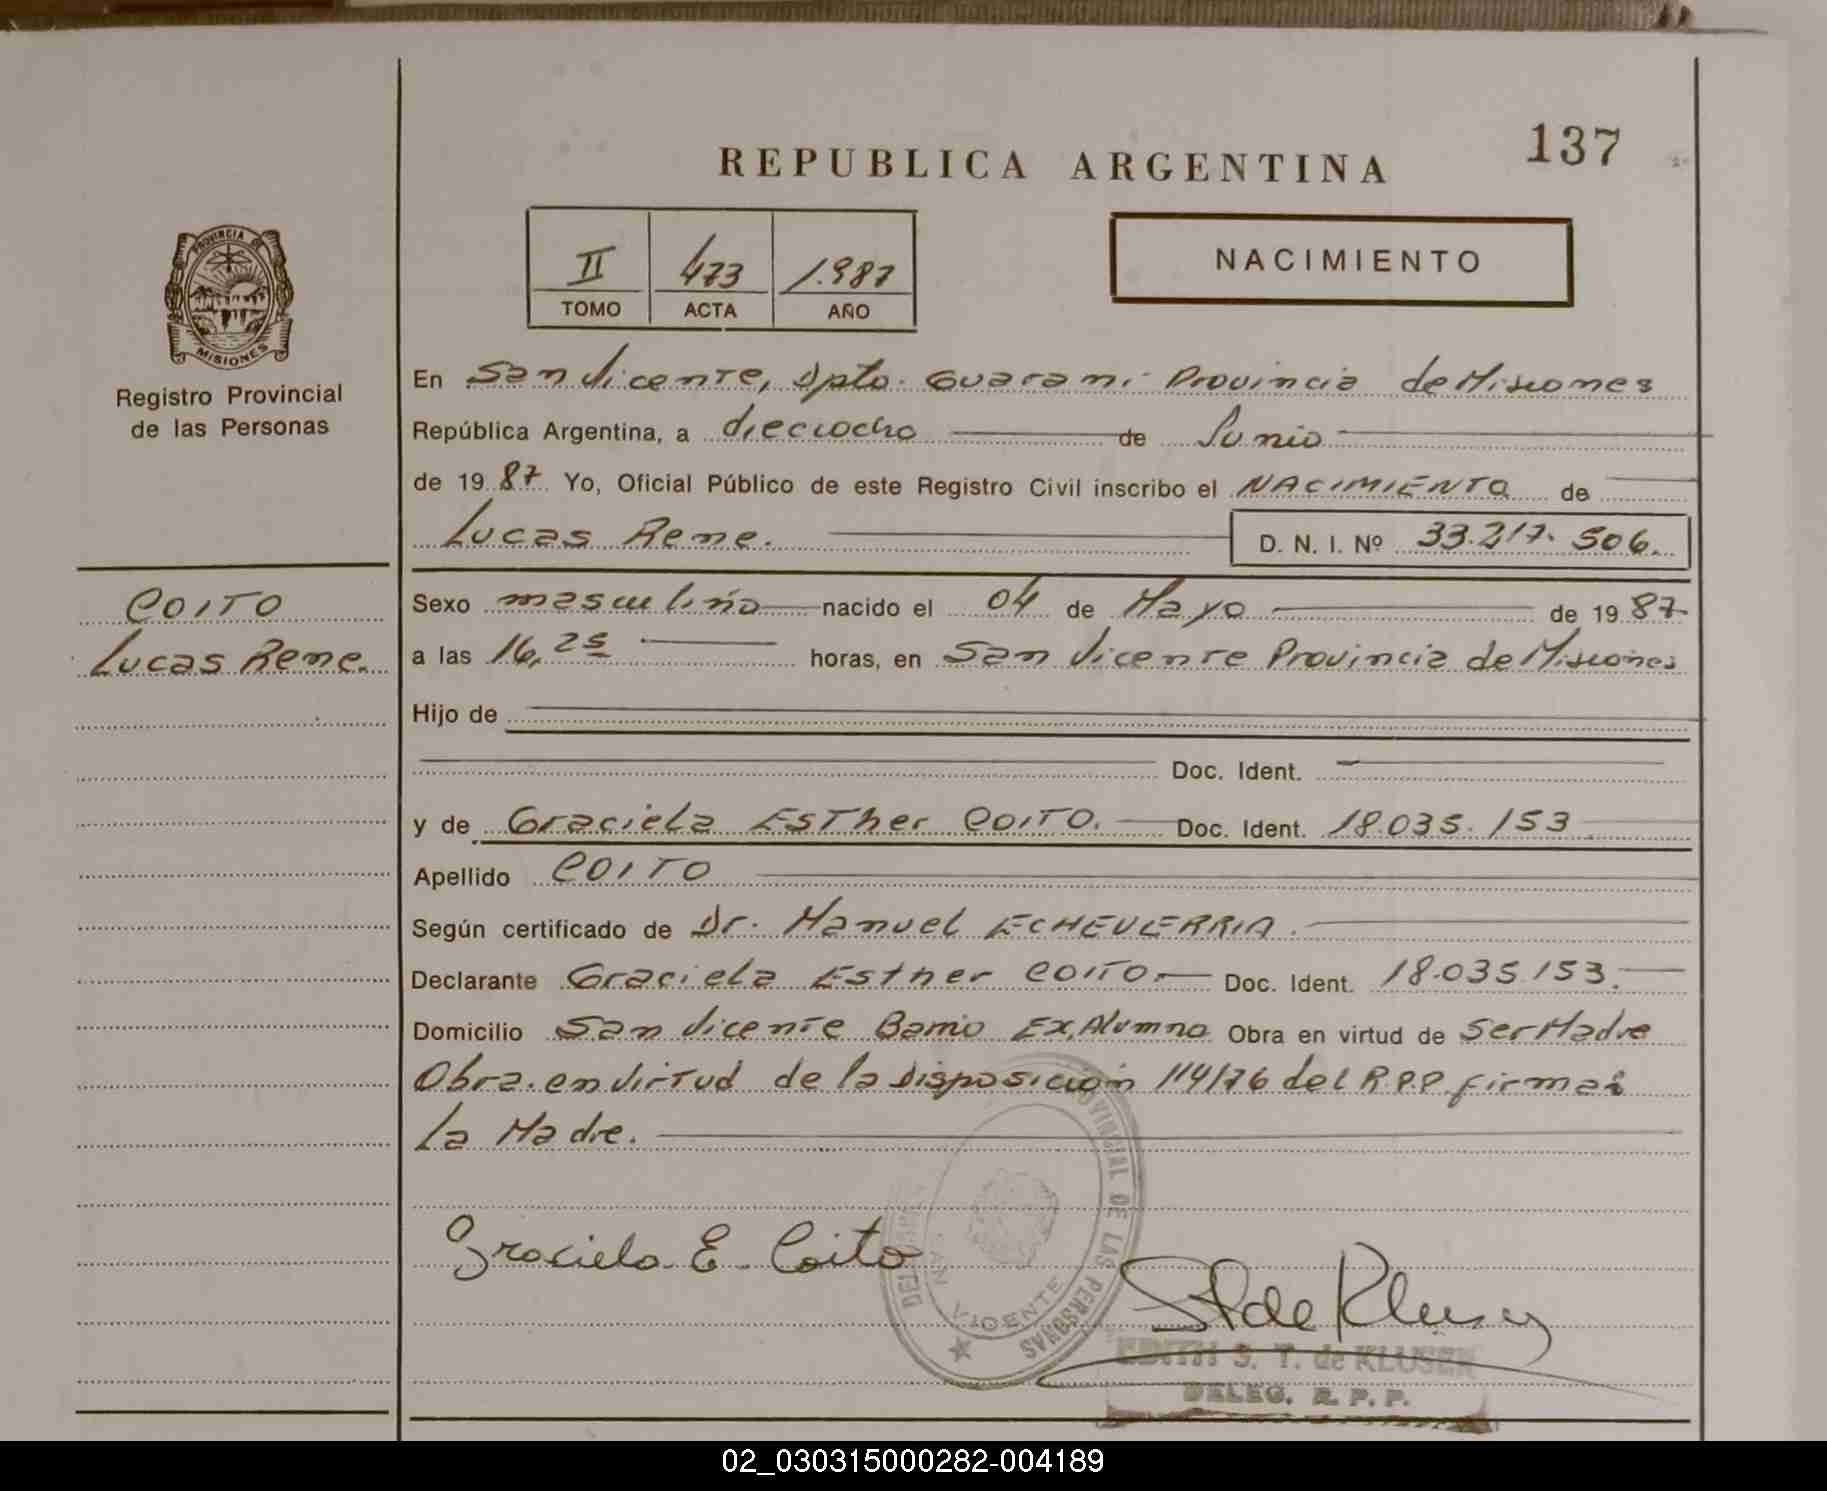 137
REPUBLICA ARGENTINA
II 473 1.987
TOMO ACTA AÑO
NACIMIENTO
PROVINCIA DE
MISIONES
Registro Provincial
de las Personas
COITO
Lucas Rene.
En San Vicente, Dpto. Guarani Provincia de Misiones
República Argentina, a dieciocho de Junio
de 19 87 Yo, Oficial Público de este Registro Civil inscribo el NACIMIENTO de
Lucas Rene. D. N. I. Nº 33.217.506.
Sexo masculino nacido el 04 de Mayo de 19 87
a las 16,25 horas, en San Vicente Provincia de Misiones
Hijo de
Doc. Ident.
y de Graciela Esther COITO. Doc. Ident. 18.035.153
Apellido COITO
Según certificado de Dr. Manuel ECHEVERRIA.
Declarante Graciela Esther COITO. Doc. Ident. 18.035.153.
Domicilio San Vicente Barrio Ex,Alumno Obra en virtud de ser Madre
Obra en virtud de la Disposición 114/76 del R.P.P. firma
La Madre.
Graciela E. Coito
PROVINCIAL DE LAS PERSONAS
SAN VICENTE
EDITH S. T. de KLUSEN
DELEG. R. P. P.
02_030315000282-004189